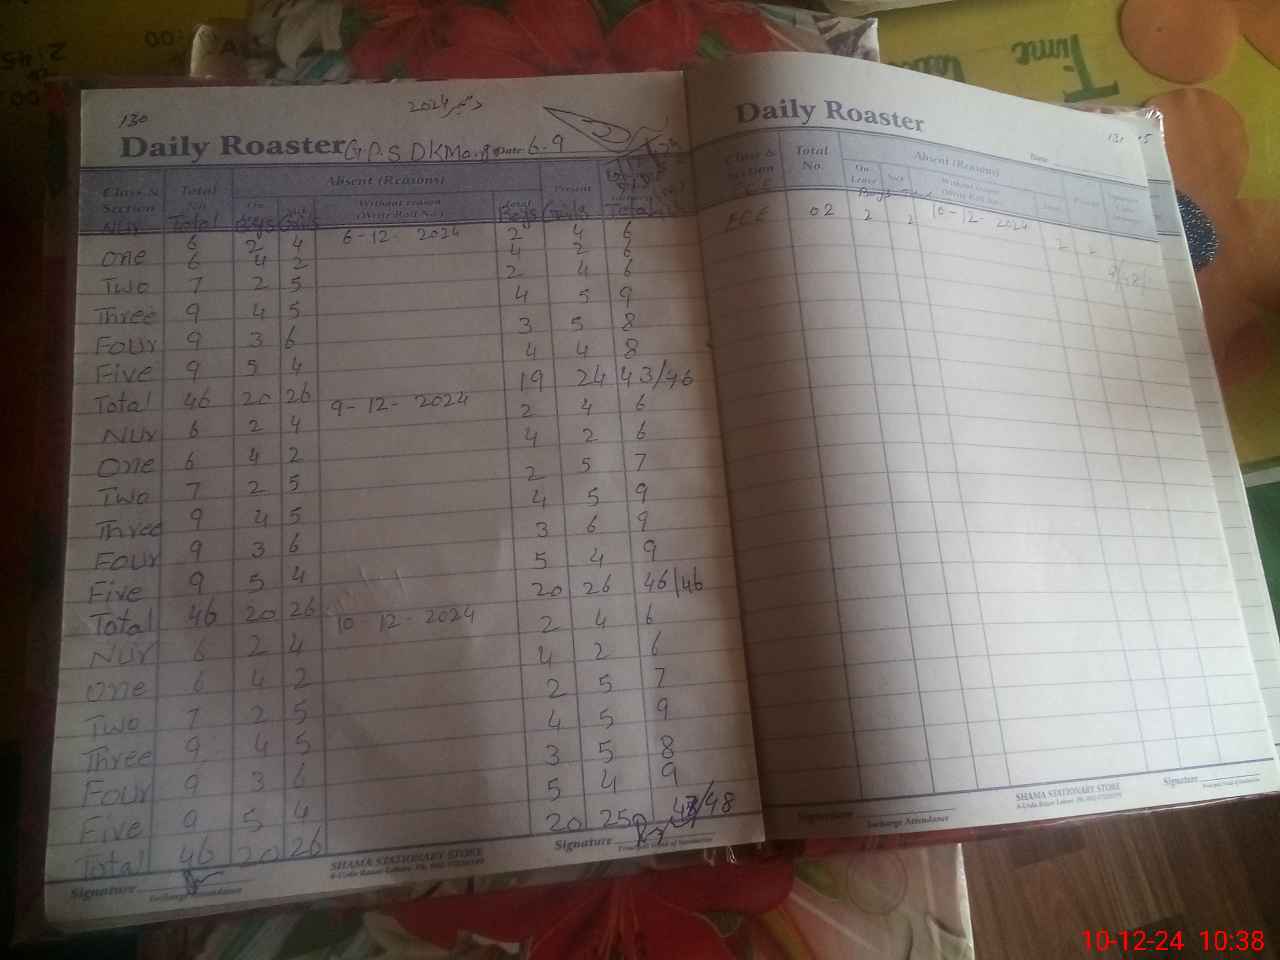 130
دسمبر 2024
Daily Roaster G.P.S DKMo.R Date 6-9
Class & Section Total Absent (Reasons) Present
Without reason (Write Roll No.)
Nur Total Boys Girls Total Boys Girls Total
6 2 4 6-12-2024 2 4 6
One 6 4 2 4 2 6
Two 7 2 5 2 4 6
Three 9 4 5 4 5 9
Four 9 3 6 3 5 8
Five 9 5 4 4 4 8
Total 46 20 26 19 24 43/46
9-12-2024
Nur 6 2 4 2 4 6
One 6 4 2 4 2 6
Two 7 2 5 2 5 7
Three 9 4 5 4 5 9
Four 9 3 6 3 6 9
Five 9 5 4 5 4 9
Total 46 20 26 20 26 46/46
10-12-2024
Nur 6 2 4 2 4 6
One 6 4 2 4 2 6
Two 7 2 5 2 5 7
Three 9 4 5 4 5 9
Four 9 3 6 3 5 8
Five 9 5 4 5 4 9
Total 46 20 26 20 25 /48
Signature
Incharge Attendance
SHAMA STATIONARY STORE
Signature
Daily Roaster
131
Date
Class & Section Total No. Absent (Reasons)
On Leave Sick Without reason (Write Roll No.) Present
ECE 02 2 2 10-12-2024 2 2
Signature
Incharge Attendance
SHAMA STATIONARY STORE
Signature
Time
2:45
10-12-24 10:38